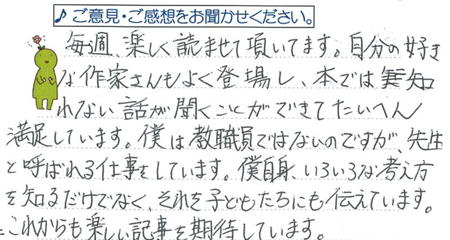 ♪ご意見・ご感想をお聞かせください。
毎週、楽しく読ませて頂いてます。自分の好き
な作家さんもよく登場し、本では知
れない話が聞くことができてたいへん
満足しています。僕は教職員ではないのですが、先生
と呼ばれる仕事をしています。僕自身、いろいろな考え方
を知るだけでなく、それを子どもたちにも伝えています。
これからも楽しい記事を期待しています。